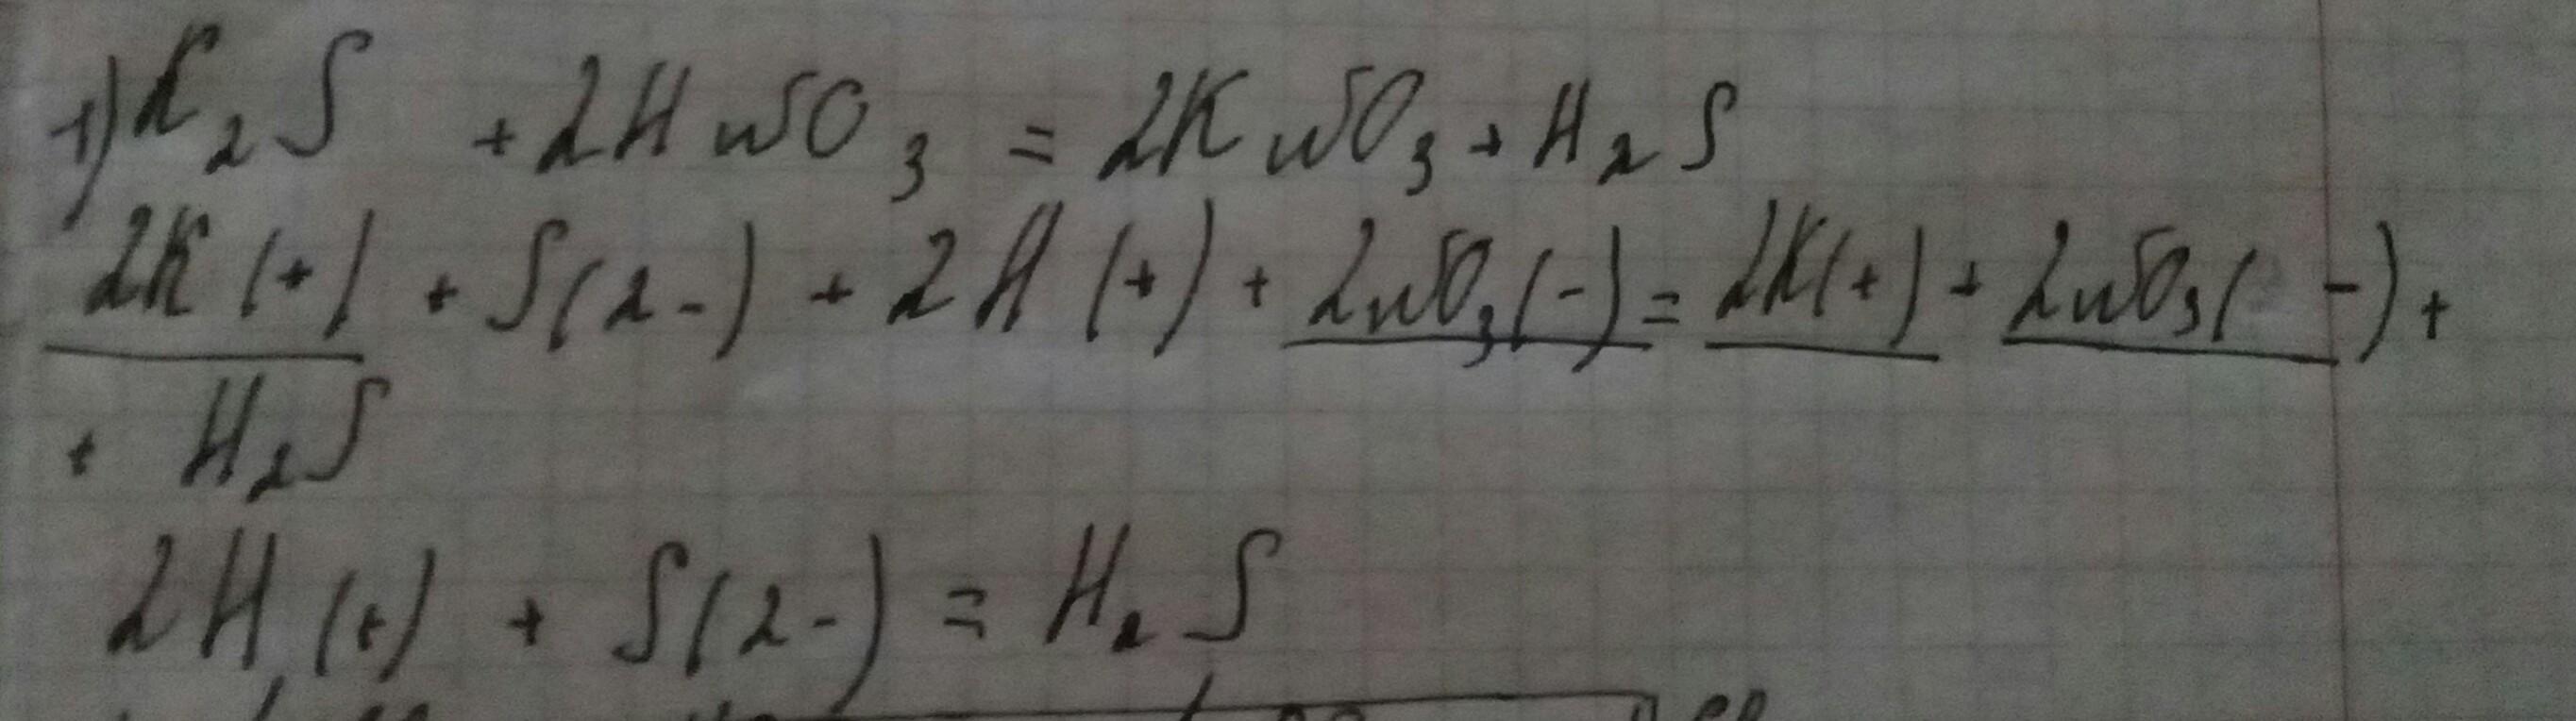 1) K₂S + 2HNO₃ = 2KNO₃ + H₂S
2K(+) + S(2-) + 2H(+) + 2NO₃(-) = 2K(+) + 2NO₃(-) +
+ H₂S
2H(+) + S(2-) = H₂S